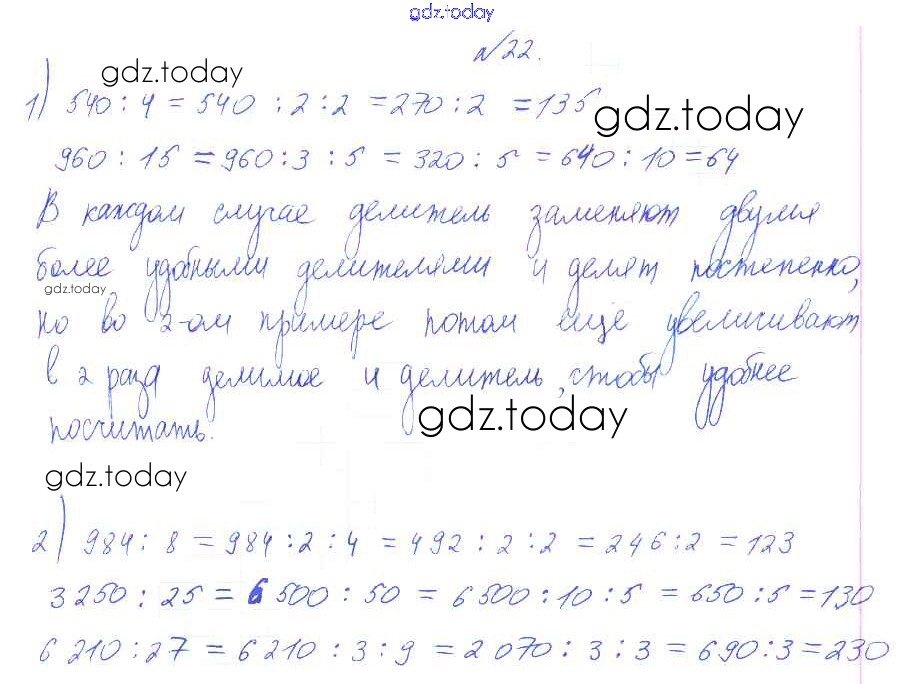 gdz.today
№22.
gdz.today
1) 540 : 4 = 540 : 2 : 2 = 270 : 2 = 135
gdz.today
960 : 15 = 960 : 3 : 5 = 320 : 5 = 640 : 10 = 64
В каждом случае делитель заменяют двумя
более удобными делителями и делят постепенно,
gdz.today
но во 2-ом примере потом ещё увеличивают
в 2 раза делимое и делитель, чтобы удобнее
gdz.today
посчитать.
gdz.today
2) 984 : 8 = 984 : 2 : 4 = 492 : 2 : 2 = 246 : 2 = 123
3 250 : 25 = 6 500 : 50 = 6 500 : 10 : 5 = 650 : 5 = 130
6 210 : 27 = 6 210 : 3 : 9 = 2 070 : 3 : 3 = 690 : 3 = 230